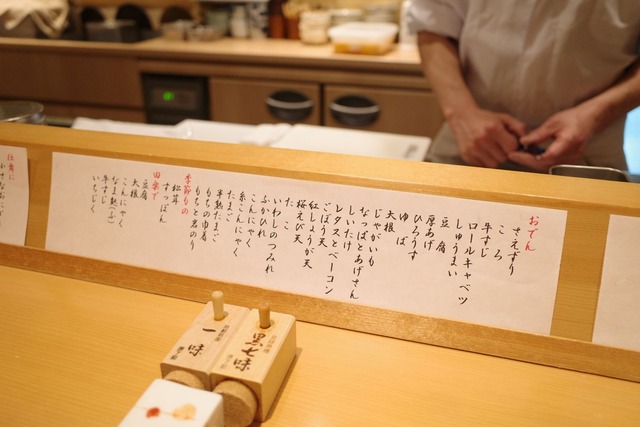 おでん
さえずり
ころ
牛すじ
ロールキャベツ
しゅうまい
豆腐
厚あげ
ひろうす
ゆば
大根
じゃがいも
なっぱとあげさん
しいたけ
レタスとベーコン
ごぼう天
紅しょうが天
桜えび天
たこ
いわしのつみれ
ふかひれ
こんにゃく
糸こんにゃく
たまご
半熟たまご
もちの巾着
もちと岩のり
季節もの
松茸
すっぽん
田楽で
豆腐
大根
こんにゃく
なま麩
牛すじ
いちじく
一味
黒七味